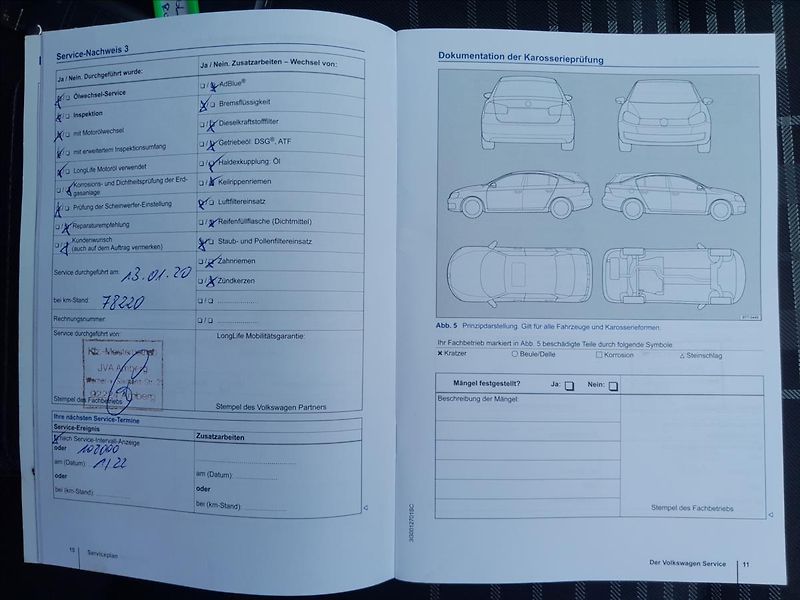 Service-Nachweis 3
Ja / Nein. Durchgeführt wurde:
Ölwechsel-Service
Inspektion
mit Motorölwechsel
mit erweitertem Inspektionsumfang
LongLife Motoröl verwendet
Korrosions- und Dichtheitsprüfung der Erd-
gasanlage
Prüfung der Scheinwerfer-Einstellung
Reparaturempfehlung
Kundenwunsch
(auch auf dem Auftrag vermerken)
Service durchgeführt am: 13.01.20
bei km-Stand: 78220
Rechnungsnummer:
Service durchgeführt von:
Kfz-Meister
JVA Amberg
92224 Amberg
Stempel des Fachbetriebs
Ja / Nein. Zusatzarbeiten – Wechsel von:
AdBlue®
Bremsflüssigkeit
Dieselkraftstofffilter
Getriebeöl: DSG®, ATF
Haldexkupplung: Öl
Keilrippenriemen
Luftfiltereinsatz
Reifenfüllflasche (Dichtmittel)
Staub- und Pollenfiltereinsatz
Zahnriemen
Zündkerzen
LongLife Mobilitätsgarantie:
Stempel des Volkswagen Partners
Ihre nächsten Service-Termine
Service-Ereignis
nach Service-Intervall-Anzeige
oder 102000
am (Datum): 1/22
oder
bei (km-Stand):
Zusatzarbeiten
am (Datum):
oder
bei (km-Stand):
Serviceplan
Dokumentation der Karosserieprüfung
Abb. 5 Prinzipdarstellung. Gilt für alle Fahrzeuge und Karosserieformen.
Ihr Fachbetrieb markiert in Abb. 5 beschädigte Teile durch folgende Symbole:
Kratzer Beule/Delle Korrosion Steinschlag
Mängel festgestellt? Ja: Nein:
Beschreibung der Mängel:
Stempel des Fachbetriebs
3G0012701SC
Der Volkswagen Service 11